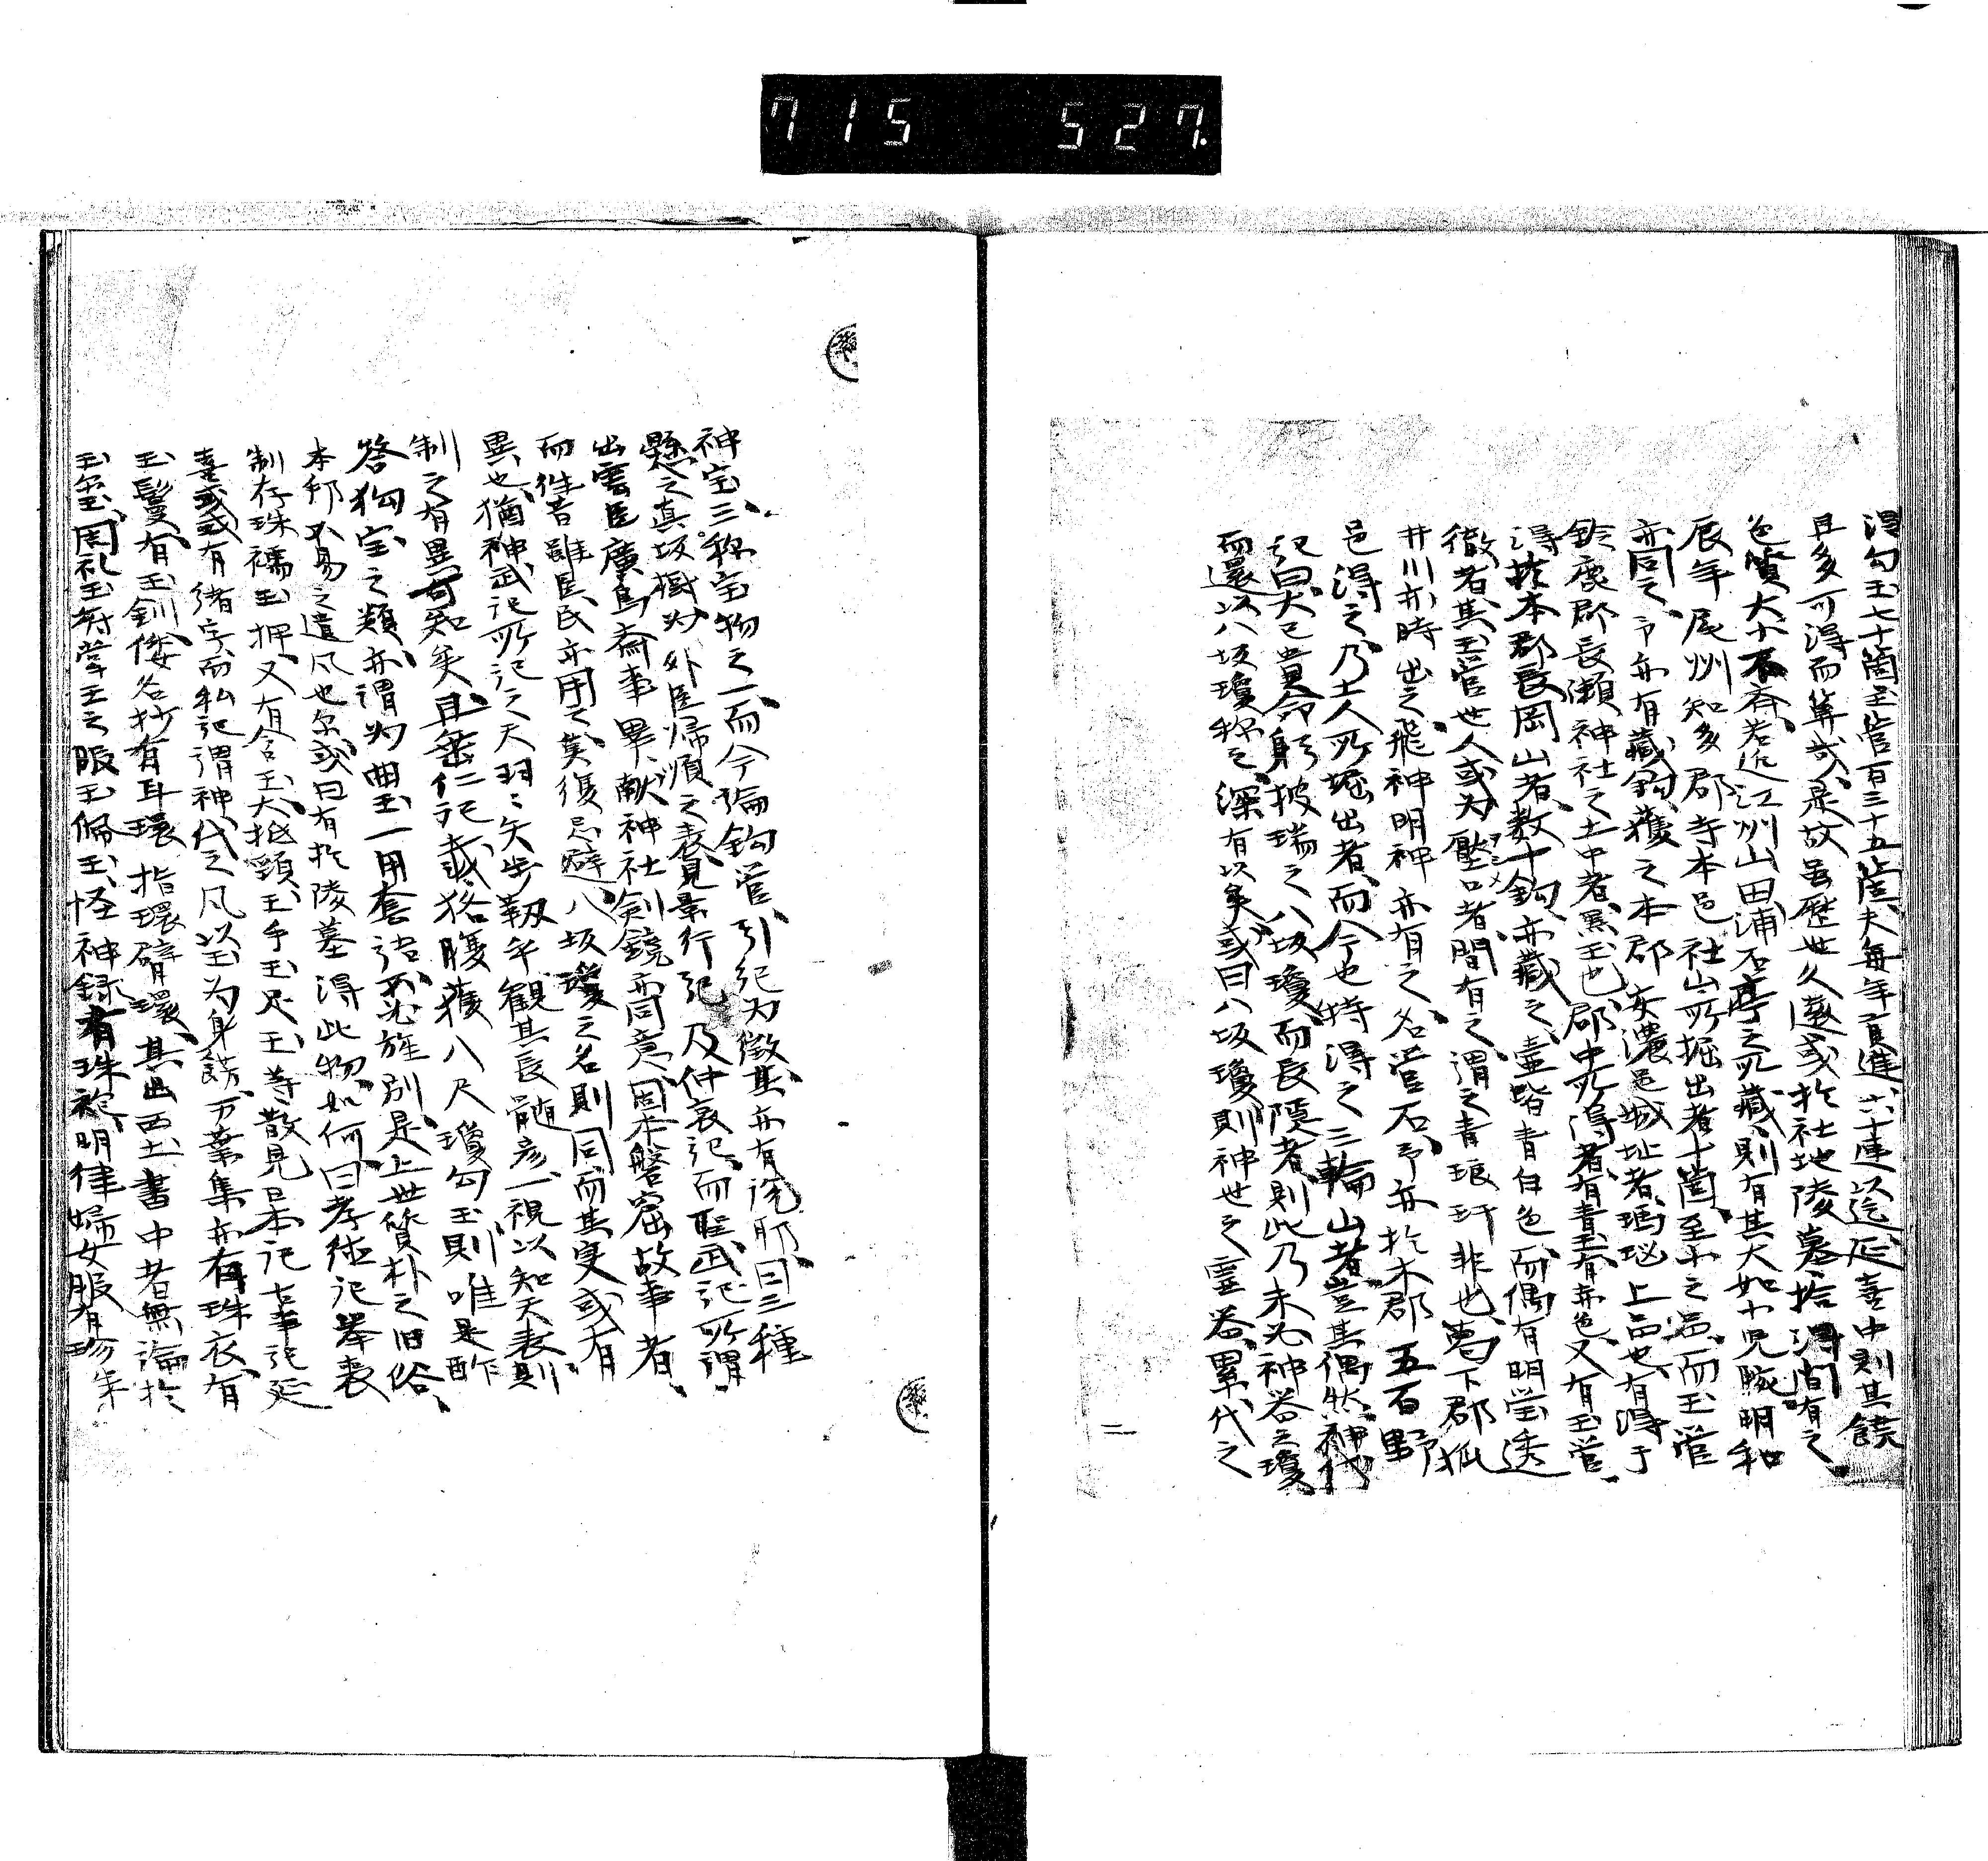 715 527.
得勾玉七十箇玉管百三十五箇、夫毎年貢進六十連以迄延喜中則其饒
且多可得而筭哉、是故虽歴世久遠或於社地陵墓拾得間有之、
色質大小不斉、若近江州山田浦石亭之所藏則有其大如小児腕、明和
辰年尾州知多郡寺本邑社山所掘出者十箇至小之品、而玉管
亦同之、予亦有藏鈎獲之本郡安濃邑城址者瑪瑙上品也、有得于
鈴鹿郡長瀬神社之土中者黒玉也、郡中所得者有青玉有赤色又有玉管
得於本郡長岡山者数十鈎亦藏之、壷皆青白色而偶有明瑩透
徹者、其玉管世人或为壓口者間有之、謂之青琅玕非也、葛下郡狐
井川亦時出之、飛神明神亦有之、名管石、予亦於本郡五百野
邑得之、乃土人所堀出者、而今也特得之三輪山者豈其偶然、神代
記曰、大己貴命躬披瑞之八坂瓊、而長隠者則此乃未必神器之瓊
而還以八坂瓊称之、深有以矣、或曰八坂瓊則神世之霊器、累代之
二
神宝、三称宝物之一、而今論鈎管引紀为徴、其亦有説耶、曰三種
懸之真坂樹、为外臣帰順之表、見景行記及仲哀記、而聖武記所謂
出雲臣廣嶋斎事畢、献神社剣鏡亦同意、固本磐窟故事者、
而徃昔雖臣民亦用之、莫復忌避、八坂瓊之名則同而其実或有
異也、猶神武記所記之天羽々矢歩靫年観其長髄彦一視以知天表則
制之有異可知矣、且垂仁記載狢腹獲八尺瓊勾玉則唯是酢
答狗宝之類、亦謂为曲玉、一用套語不必旌別、是上世質朴之旧俗、
本邦不易之遺风也尔、或曰有於陵墓得此物如何、曰孝徳記挙喪
制存珠襦玉押、又有含玉、大抵頸玉手玉足玉等散見日本記古事記延
喜式、或有緒字、而私記謂神代之凡以玉为身餝、万葉集亦有珠衣、有
玉鬘、有玉釧、倭名抄有耳環指環臂環、其出西土書中者無論於
玉釜玉、周礼玉府掌王之服玉佩玉、怪神録有珠袍、明律婦女服有珍朱